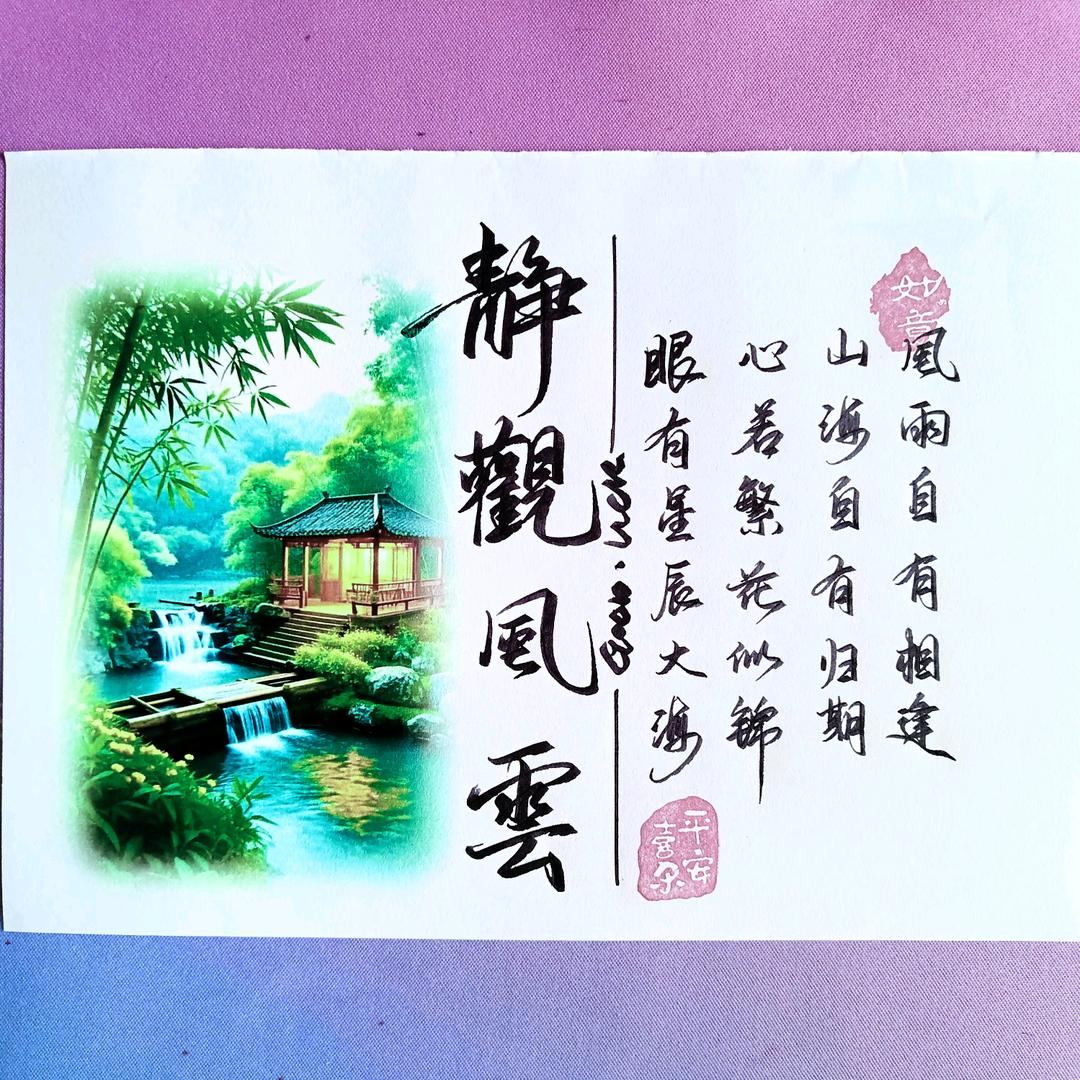 如意
風雨自有相逢
山海自有归期
心若繁花似錦
眼有星辰大海
平安喜乐
静觀風雲